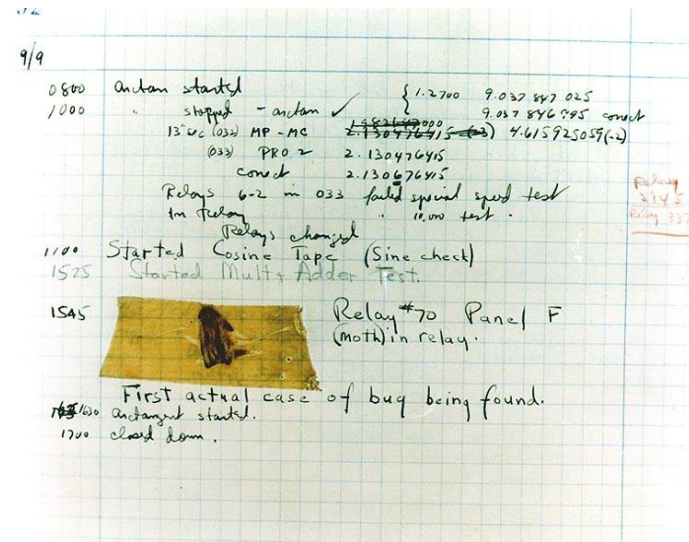 9/9
0800 antan started { 1.2700 9.037 847 025
1000 " stopped - antan ✓ 9.037 846 995 conect
13" uc (032) MP - MC 2.130476415 4.615925059(-2)
(033) PRO 2 2.130476415
conect 2.130676415
Relays 6-2 in 033 failed special speed test
in relay " 10,000 test .
Relays changed
1100 Started Cosine Tape (Sine check)
1525 Started Mult + Adder Test.
1545 Relay #70 Panel F
(moth) in relay.
First actual case of bug being found.
1630 antangent started.
1700 closed down .
Relay
Relay 337